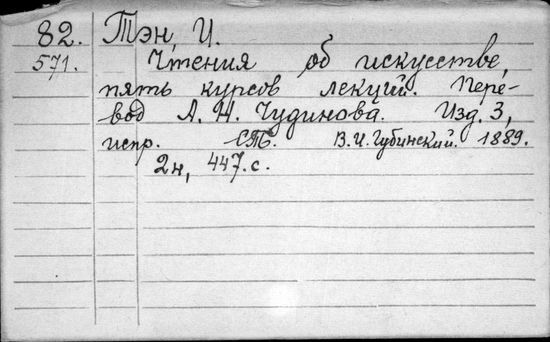 82. Тэн, И.
571. Чтения об искусстве,
пять курсов лекций. Пере-
вод А. Н. Чудинова. Изд. 3,
испр. СПБ. В. И. Губинский. 1889.
2н, 447. с.